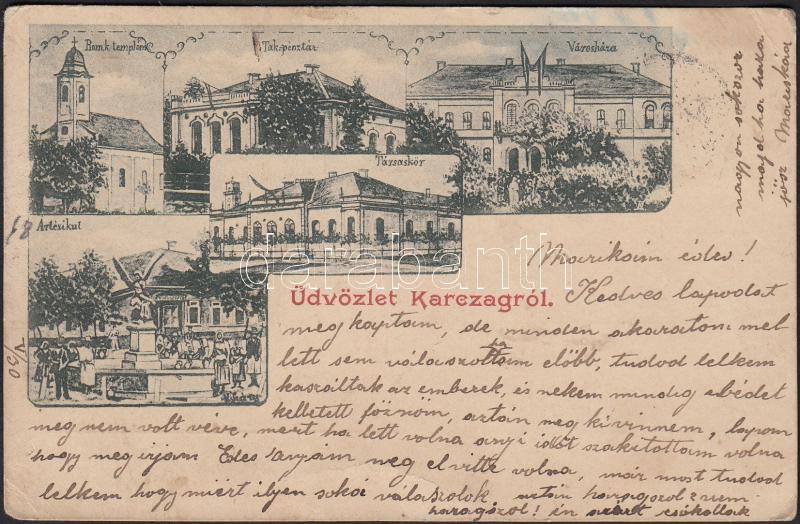 Romk. templom
Tak. pénztár
Városháza
Társaskör
Artézikut
Üdvözlet Karczagról.
darabanth
Marikám édes!
Kedves lapodat
megkaptam, de minden akaratom mel
lett sem válaszoltam előbb, tudod lelkem
kaszáltak az emberek, és nekem mindig ebédet
kelletett főznöm, aztán meg kivinnem, lapom
meg nem volt véve, mert ha lett volna anyi időt szakitottam volna
hogy meg irjam Édes anyám meg el vitte volna, már most tudod
lelkem hogy miért ilyen soká válaszolok, aztán haragszol? nem
haragszol! én csókollak
nagyon sokszor
majd ha haza
jösz Mariskád